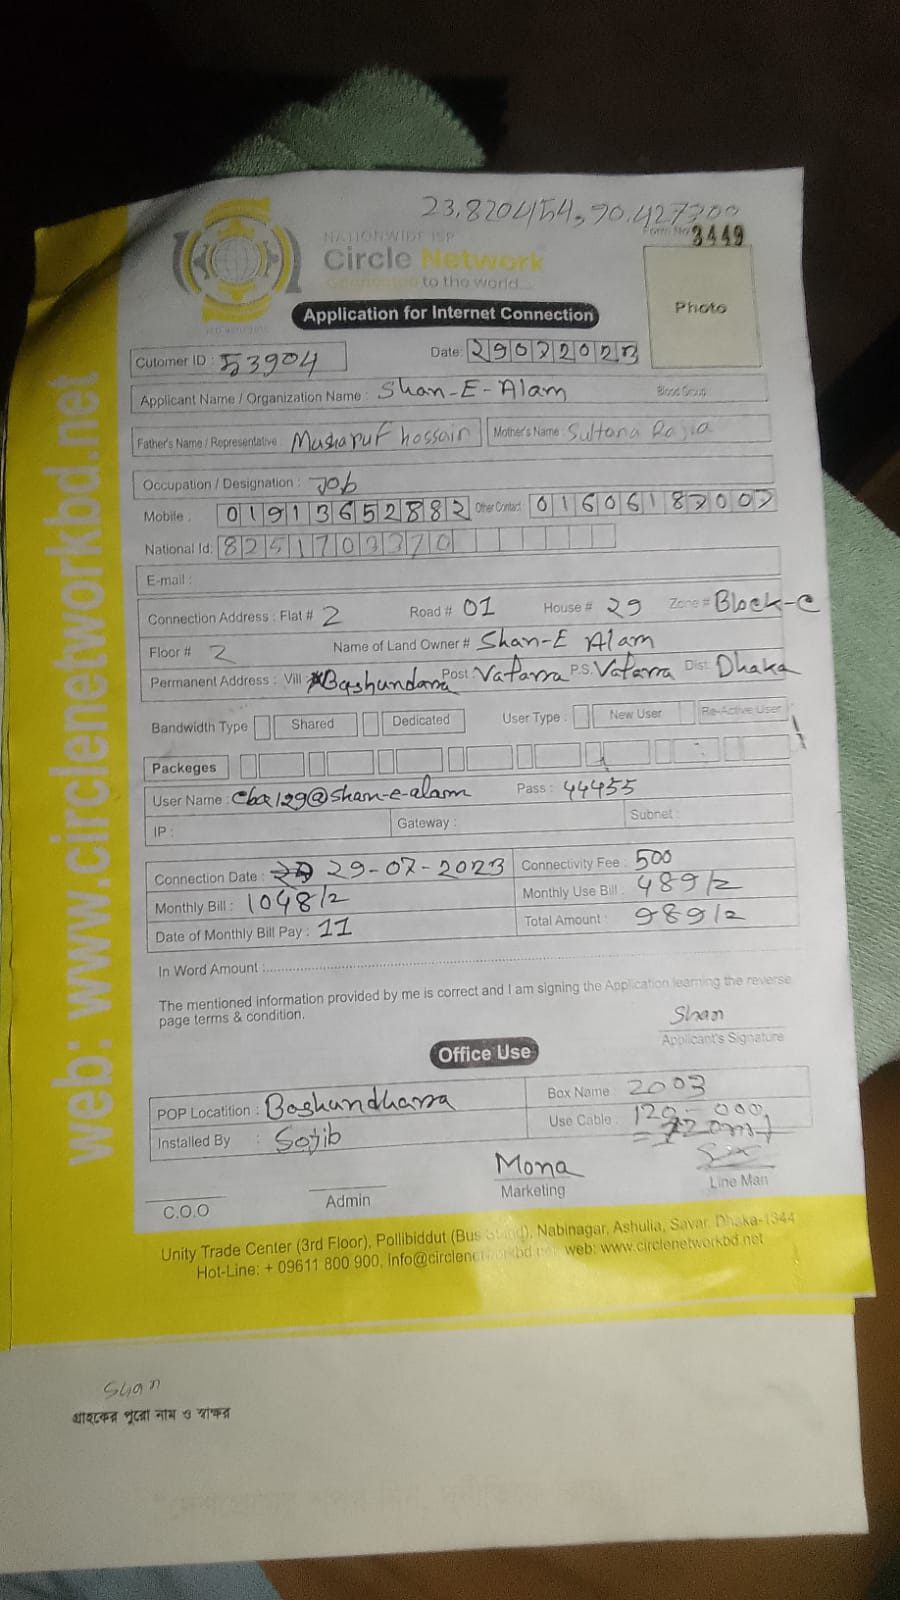 23.8204154, 90.427200
NATIONWIDE ISP
Form No 3449
Circle Network
Connected to the world...
Photo
Application for Internet Connection
Cutomer ID : 53904
Date: 29072023
Applicant Name / Organization Name : Shan-E-Alam
Blood Group
Father's Name / Representative : Musharuf hossain Mother's Name : Sultana Razia
Occupation / Designation : Job
Mobile : 01913652882 Other Contact : 01606187007
National Id: 8251703370
E-mail :
Connection Address : Flat # 2 Road # 01 House # 29 Zone # Block-C
Floor # 2 Name of Land Owner # Shan-E Alam
Permanent Address : Vill Bashundara Post: Vatarra P.S. Vatarra Dist: Dhaka
Bandwidth Type Shared Dedicated User Type : New User Re-Active User
Packeges
User Name : cba129@shan-e-alam Pass : 44455
IP : Gateway : Subnet :
Connection Date : 29-07-2023 Connectivity Fee : 500
Monthly Bill : 1048/2 Monthly Use Bill : 489/2
Date of Monthly Bill Pay : 11 Total Amount : 989/2
In Word Amount :
The mentioned information provided by me is correct and I am signing the Application learning the reverse
page terms & condition.
Shan
Applicant's Signature
Office Use
POP Locatition : Bashundharra Box Name : 2003
Installed By : Sojib Use Cable : 120-000
Mona
C.O.O Admin Marketing Line Man
Unity Trade Center (3rd Floor), Pollibiddut (Bus Stand), Nabinagar, Ashulia, Savar. Dhaka-1344
Hot-Line: + 09611 800 900, Info@circlenetworkbd.net web: www.circlenetworkbd.net
web: www.circlenetworkbd.net
Shan
গ্রাহকের পুরো নাম ও স্বাক্ষর